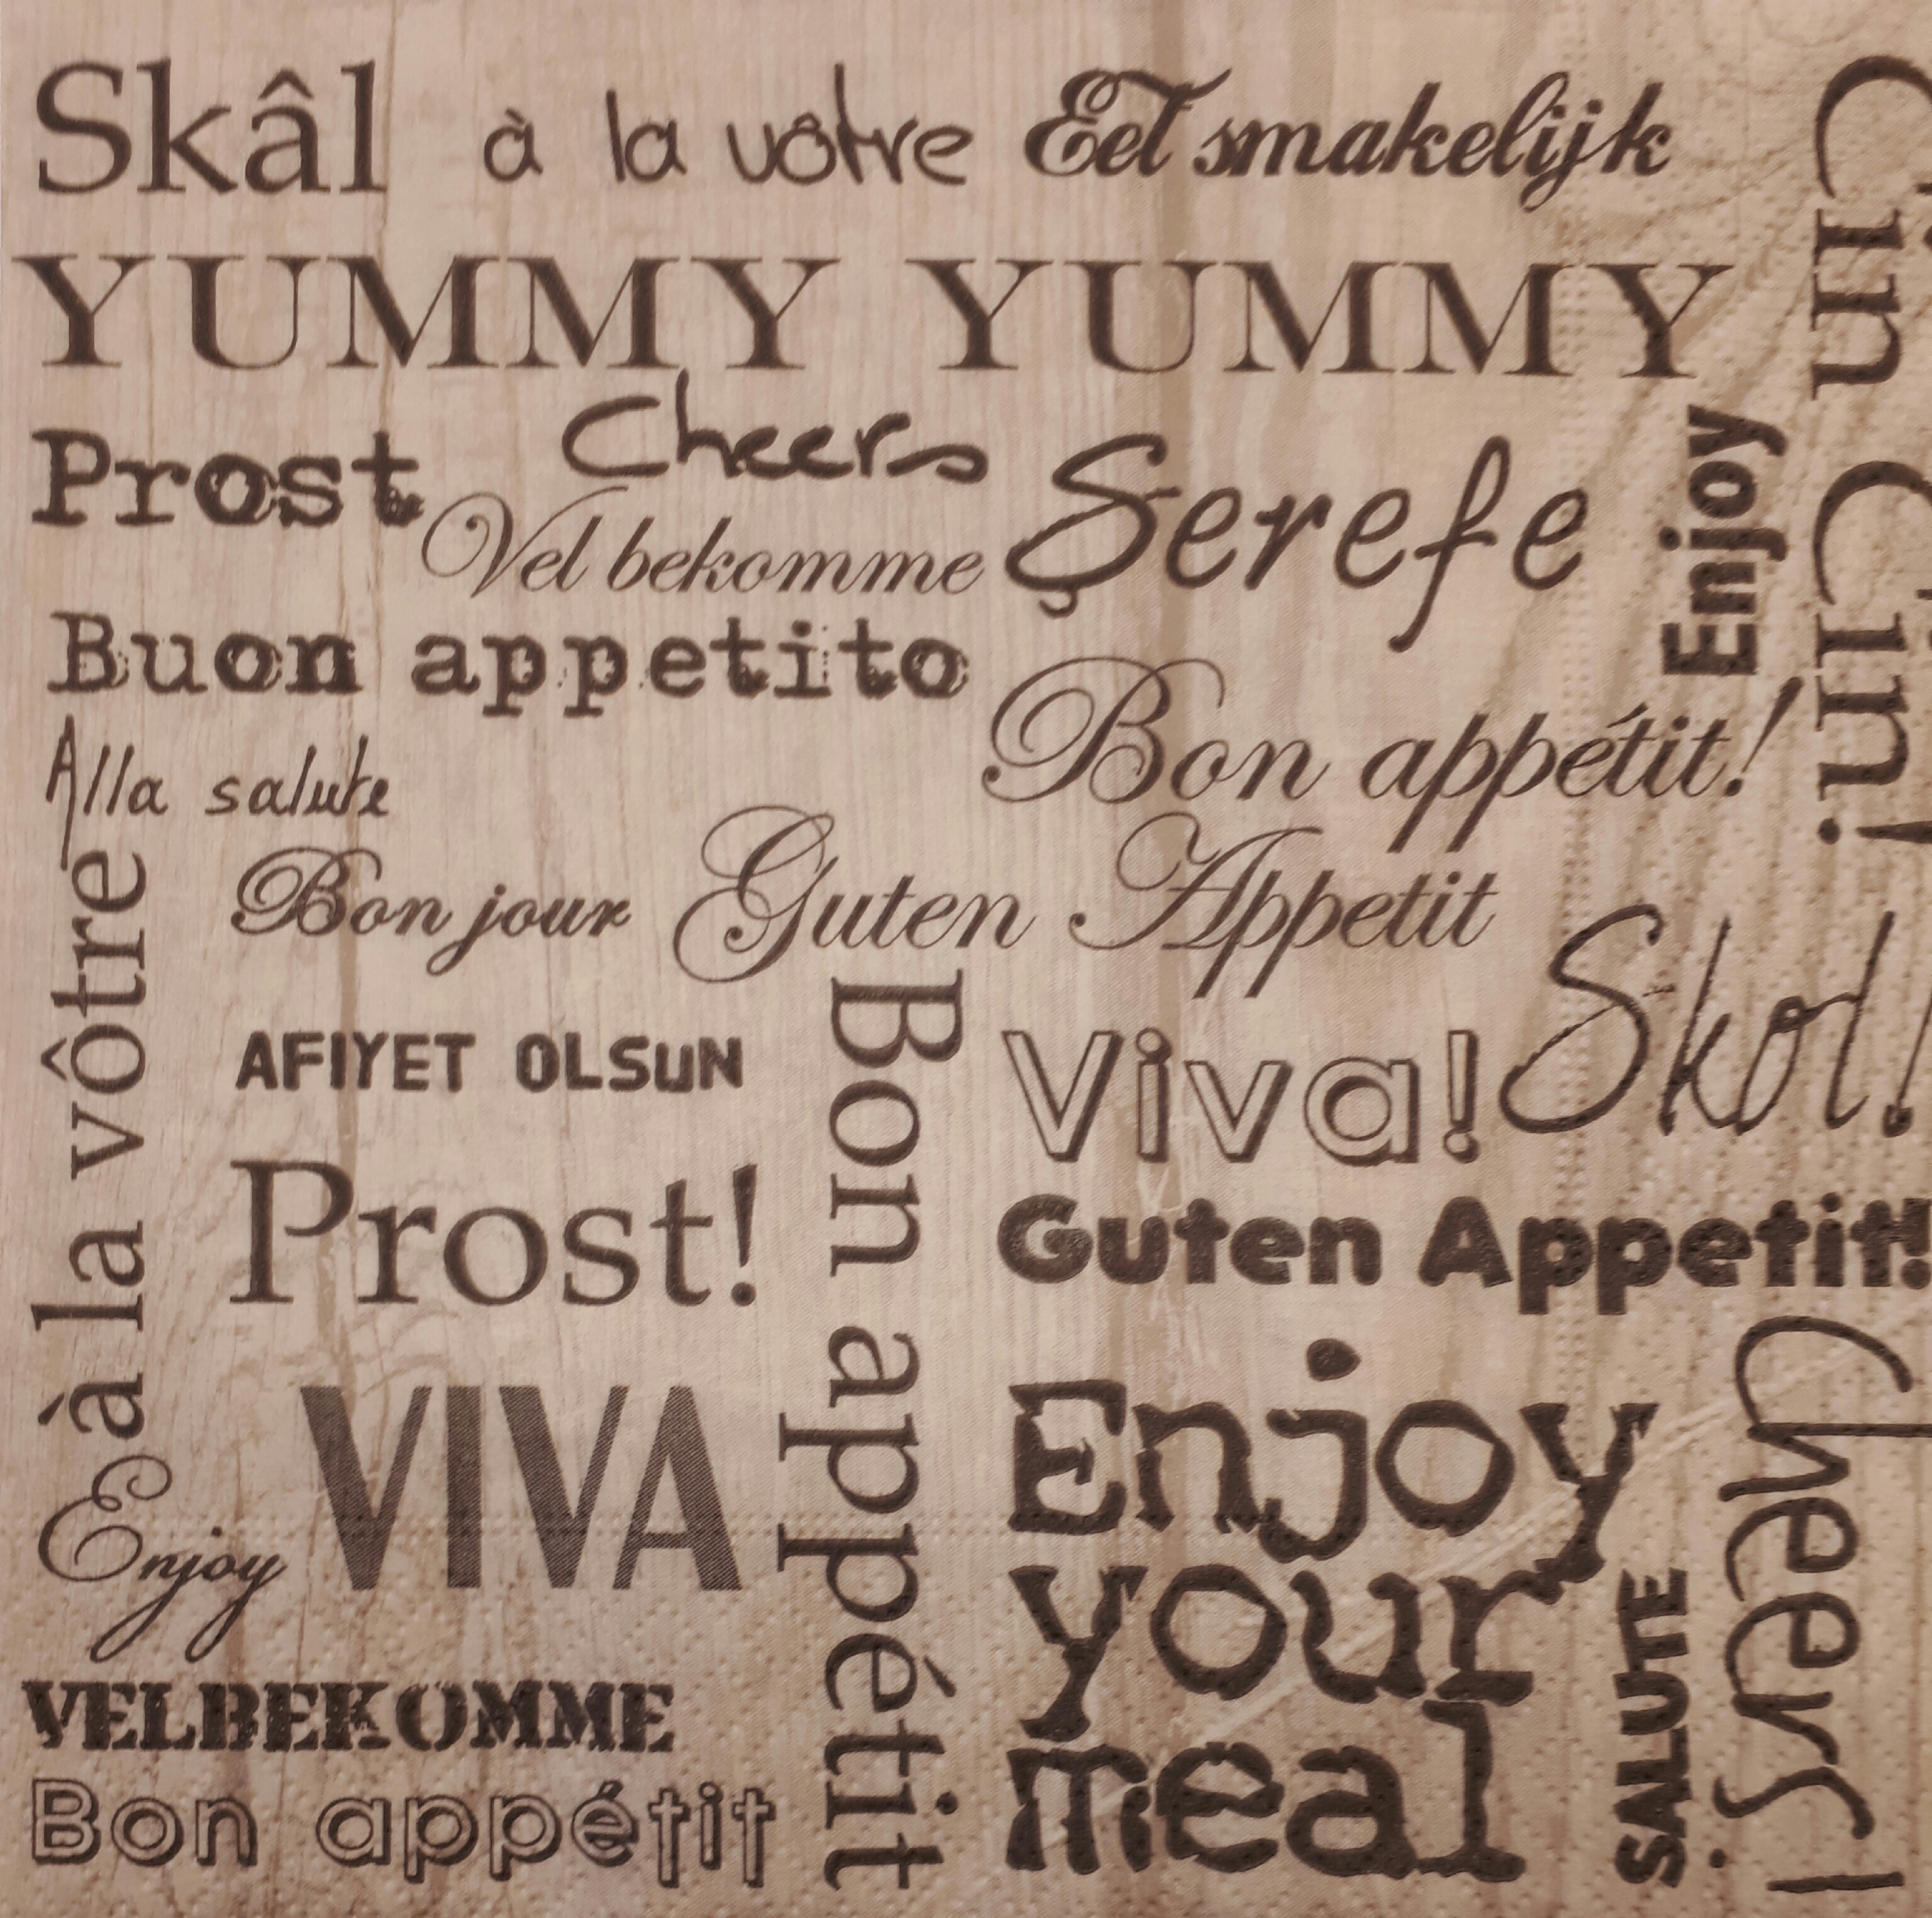 Skâl à la vôtre Eet smakelijk
YUMMY YUMMY
Cin Cin!
Prost Cheers Şerefe Enjoy
Vel bekomme
Buon appetito
Bon appétit!
Alla salute
Bon jour Guten Appetit
à la vôtre
AFIYET OLSUN
Bon appétit
Viva! Skol!
Prost!
Guten Appetit!
VIVA
Enjoy
Enjoy
your
meal
SALUTE
Cheers!
VELBEKOMME
Bon appétit